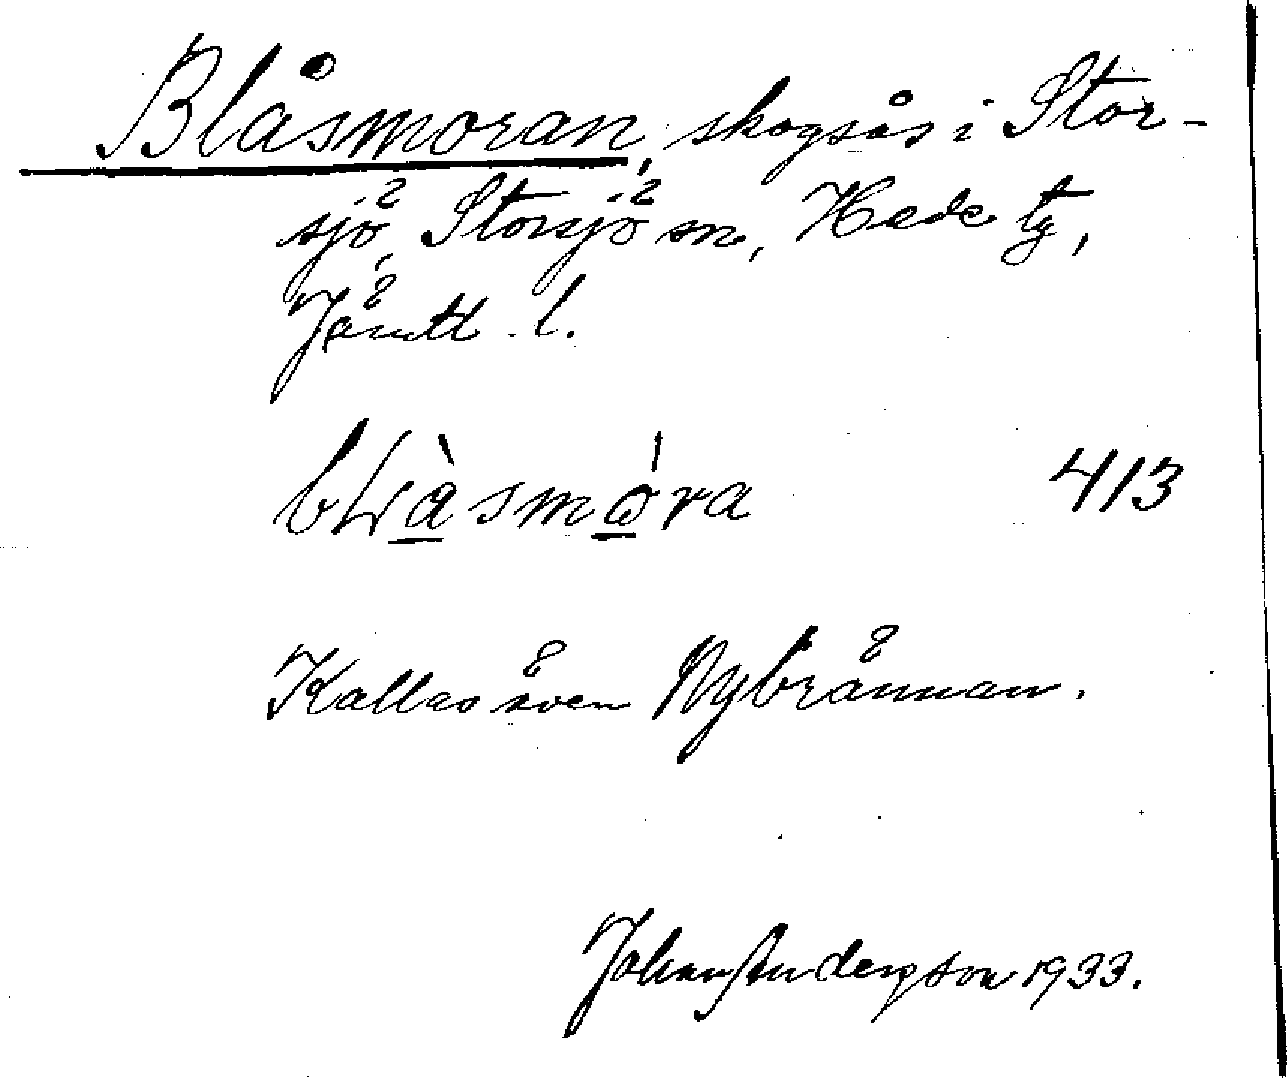 Blåsmoran, skogsås i Stor-
sjö, Storsjö sn, Hede tg,
Jämtl. l.
413
Kallas även Nybrännan.
Johan Andersson 1933.